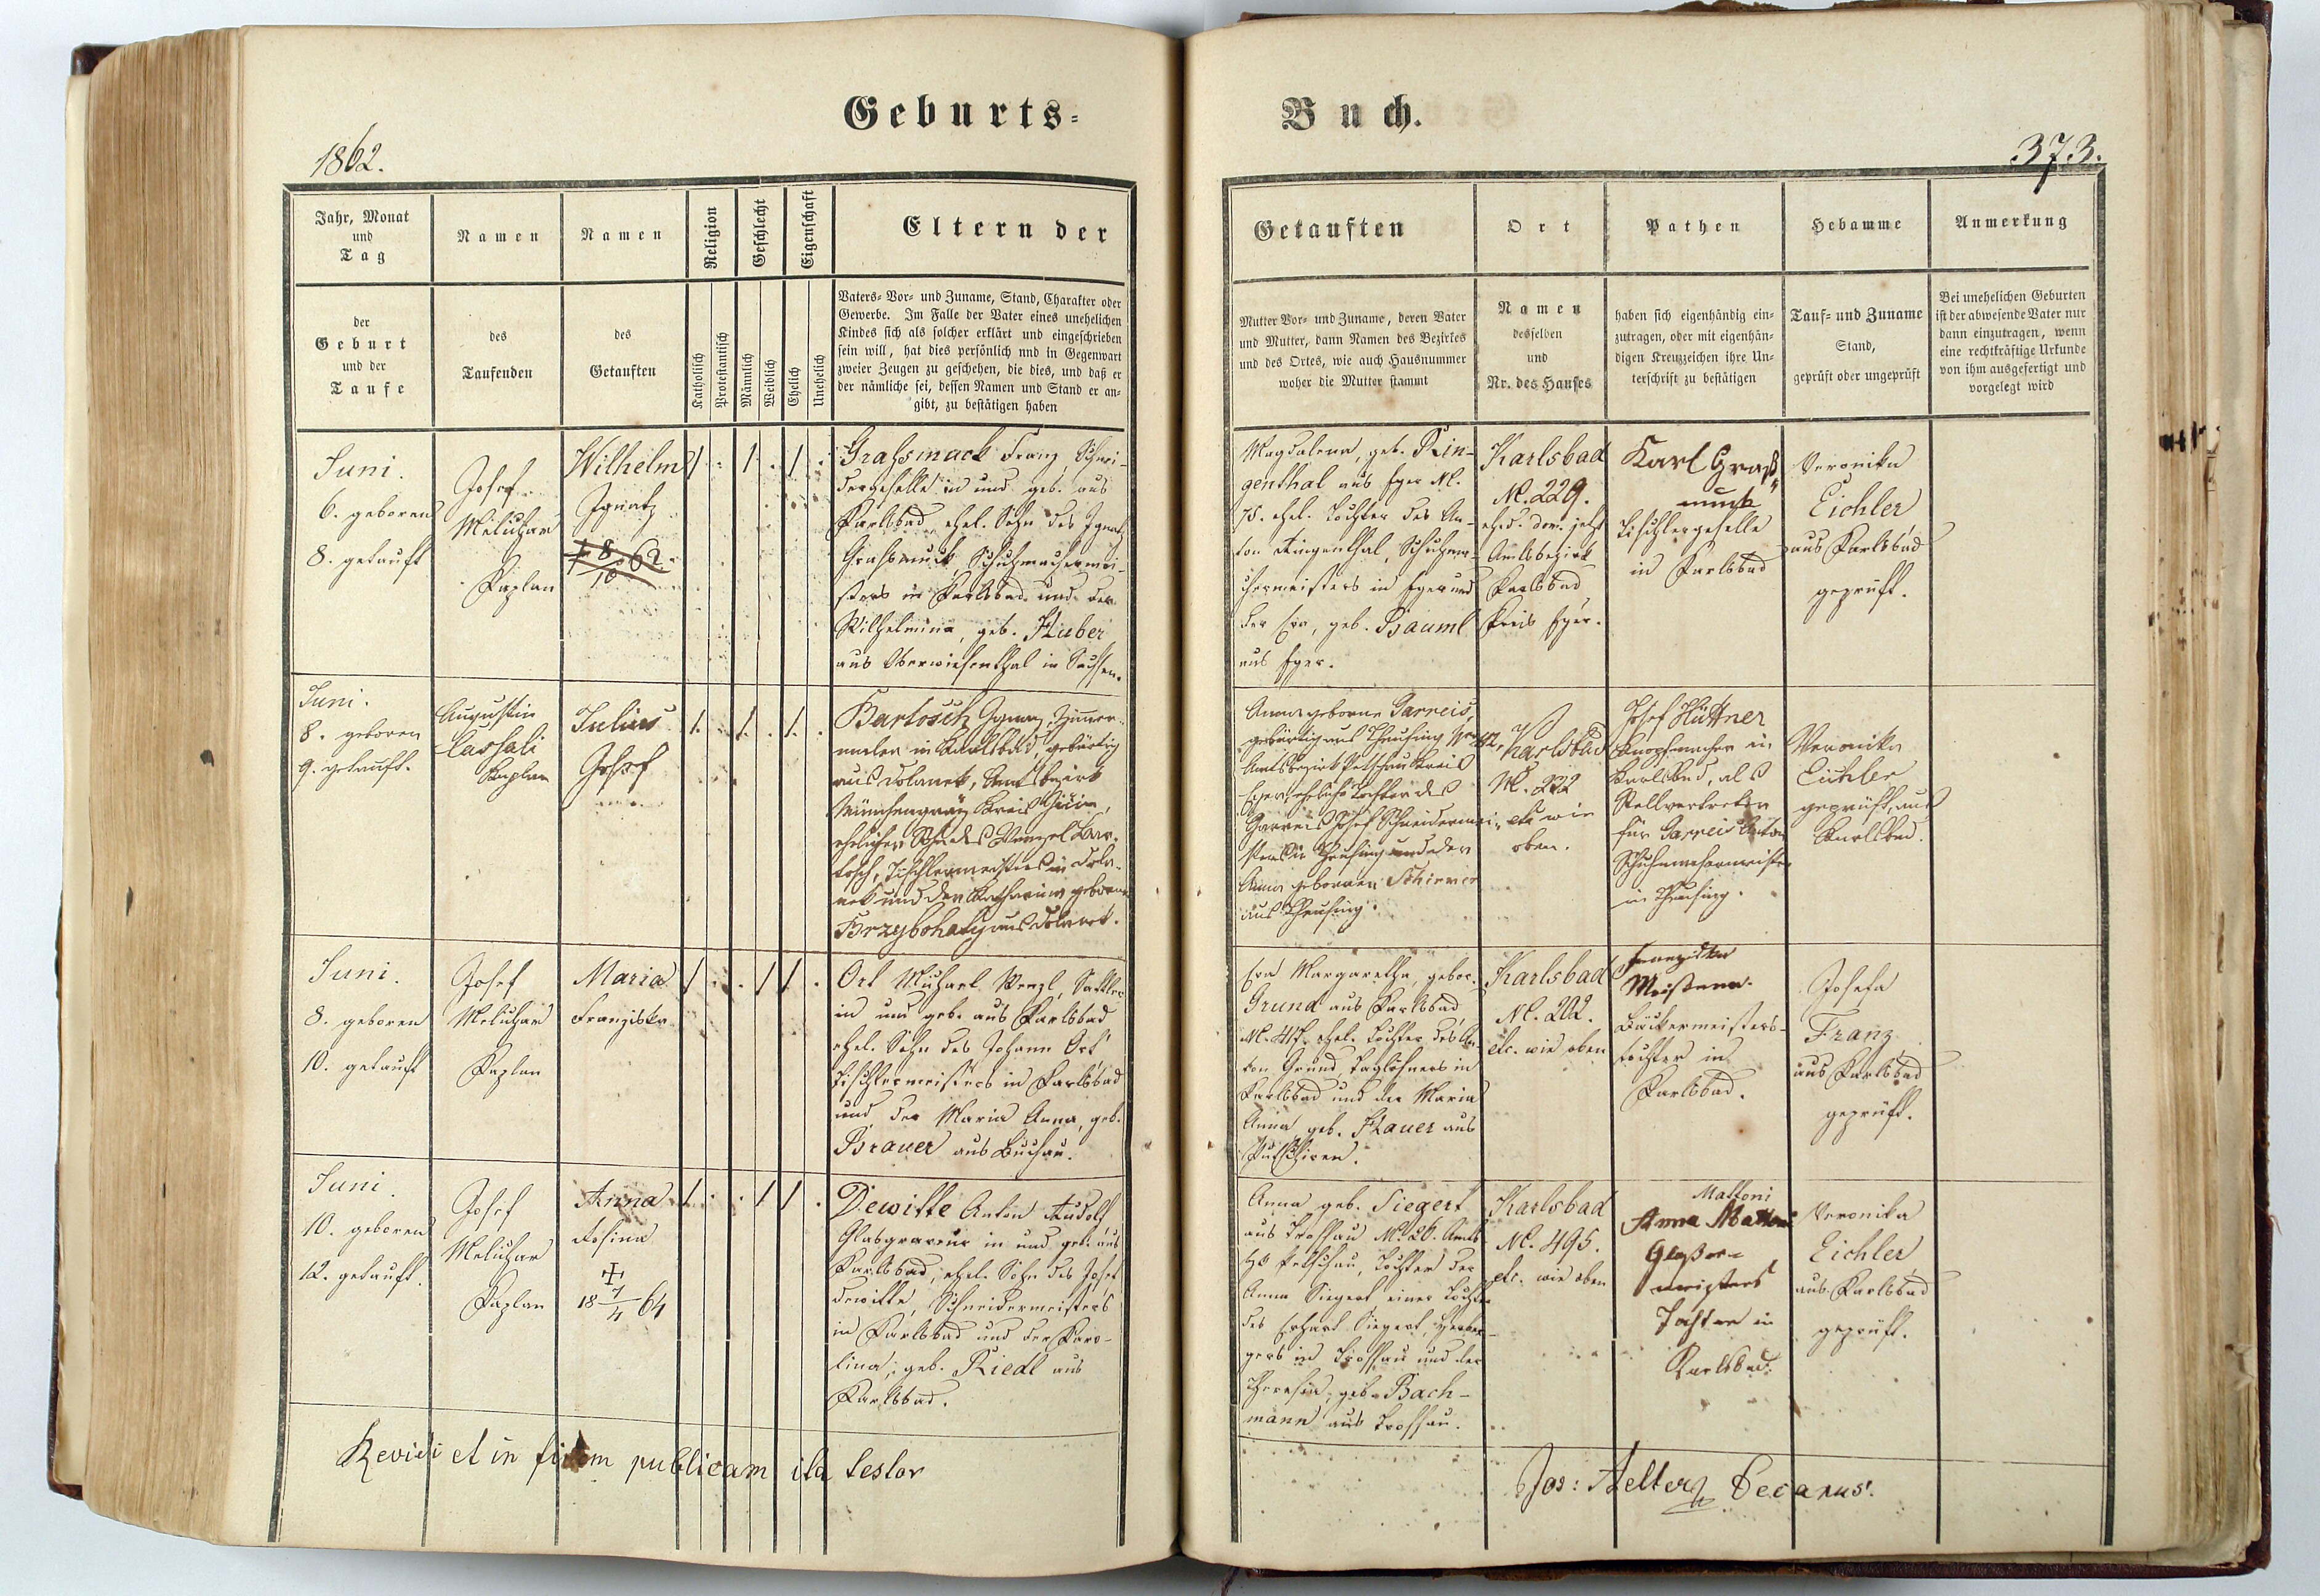 Geburts-
1862.
Jahr, Monat
und
Tag
Namen
Namen
Religion
Geschlecht
Eigenschaft
Eltern der
der
Geburt
und der
Taufe
des
Taufenden
des
Getauften
Katholisch
Protestantisch
Männlich
Weiblich
Ehelich
Unehelich
Vaters- Vor- und Zuname, Stand, Charakter oder
Gewerbe. Im Falle der Vater eines unehelichen
Kindes sich als solcher erklärt und eingeschrieben
sein will, hat dies persönlich nnd in Gegenwart
zweier Zeugen zu geschehen, die dies, und daß er
der nämliche sei, dessen Namen und Stand er an-
gibt, zu bestätigen haben
Juni.
6. geboren
8. getauft
Josef
Melichar
Kaplan
Wilhelm
Ignatz
Grassmack Franz, Schnei-
dergeselle in und geb. aus
Karlsbad, ehel. Sohn des Ignatz
Grassmuck, Schuhmachermei-
sters in Karlsbad und der
Wilhelmina, geb. Huber
aus Oberwiesenthal in Sachsen.
Juni.
8. geboren
9. getauft.
Augustin
Cassali
Kaplan
Julius
Josef
Bartosch Ignaz, Zimmer-
maler in Karlsbad, gebürtig
aus Dolanek, Amtsbezirk
Münchengrätz Kreis Gičin,
ehelicher Sohn des Wenzel Bar-
tosch, Tischlermeisters in Dola-
nek und der Katharina geborene
Brzybohaty aus Dolanek.
Juni.
8. geboren
10. getauft
Josef
Melichar
Kaplan
Maria
Franziska
Ort Michael Wenzl, Sattler
in und geb. aus Karlsbad
ehel. Sohn des Johann Ort
Tischlermeisters in Karlsbad
und der Maria Anna, geb.
Brauer aus Buchau.
Juni.
10. geboren
12. getauft.
Josef
Melichar
Kaplan
Anna
Rosina
18 7/4 64
Dewitte Anton Rudolf
Glasgraveur in und geb. aus
Karlsbad, ehel. Sohn des Josef
Dewitte, Schneidermeisters
in Karlsbad und der Karo-
lina, geb. Riedl aus
Karlsbad.
Revidi et in fidem publicam ita testor
Buch.
373.
Getauften
Ort
Pathen
Hebamme
Anmerkung
Mutter Vor- und Zuname, deren Vater
und Mutter, dann Namen des Bezirkes
und des Ortes, wie auch Hausnummer
woher die Mutter stammt
Namen
desselben
und
Nr. des Hauses
haben sich eigenhändig ein-
zutragen, oder mit eigenhän-
digen Kreuzzeichen ihre Un-
terschrift zu bestätigen
Tauf- und Zuname
Stand,
geprüft oder ungeprüft
Bei unehelichen Geburten
ist der abwesende Vater nur
dann einzutragen, wenn
eine rechtkräftige Urkunde
von ihm ausgefertigt und
vorgelegt wird
Magdalena, geb. Rin-
genthal aus Eger N.
75. ehel. Tochter des An-
ton Ringenthal, Schuhma-
chermeisters in Eger und
der Eva, geb. Bäuml
aus Eger.
Karlsbad
N. 229.
Amtsbezirk
Karlsbad
Kreis Eger.
Karl Graß
muck
Tischlergeselle
in Karlsbad
Veronika
Eichler
aus Karlsbad
geprüft.
Anna geborne Garreis,
gebürtig aus Theusing
Amtsbezirk Petschau Kreis
Eger, eheliche Tochter des
Garreis Josef Schneidermei-
sters in Theusing und der
Anna gebornen Schirmer
aus Theusing.
Karlsbad
etc wie
oben.
Josef Hüttner
Knopfmacher in
Karlsbad, als
Stellvertreter
für Garreis Anton
Schuhmachermeister
in Theusing.
Veronika
Eichler
geprüft, aus
Karlsbad.
Eva Margaretha, gebor.
Grund aus Karlsbad
ehel. Tochter des An-
ton Grund, Taglöhners in
Karlsbad und der Maria
Anna geb. Hauer aus
Karlsbad
N. 202.
etc. wie oben
Franziska
Bäckermeisters-
tochter in
Karlsbad.
Josefa
Franz
aus Karlsbad
geprüft.
Anna geb. Siegert
aus Trossau N. 26. Amts-
bez Petschau, Tochter der
Anna Siegert einer Tochter
des Erhart Siegert,
in Trossau und der
Theresia, geb. Bach-
mann aus Trossau.
Karlsbad
N. 495.
etc. wie oben
Mattoni
Anna Mattoni
meisters
Tochter in
Karlsbad.
Veronika
Eichler
aus Karlsbad
geprüft.
Jos: Decanus.